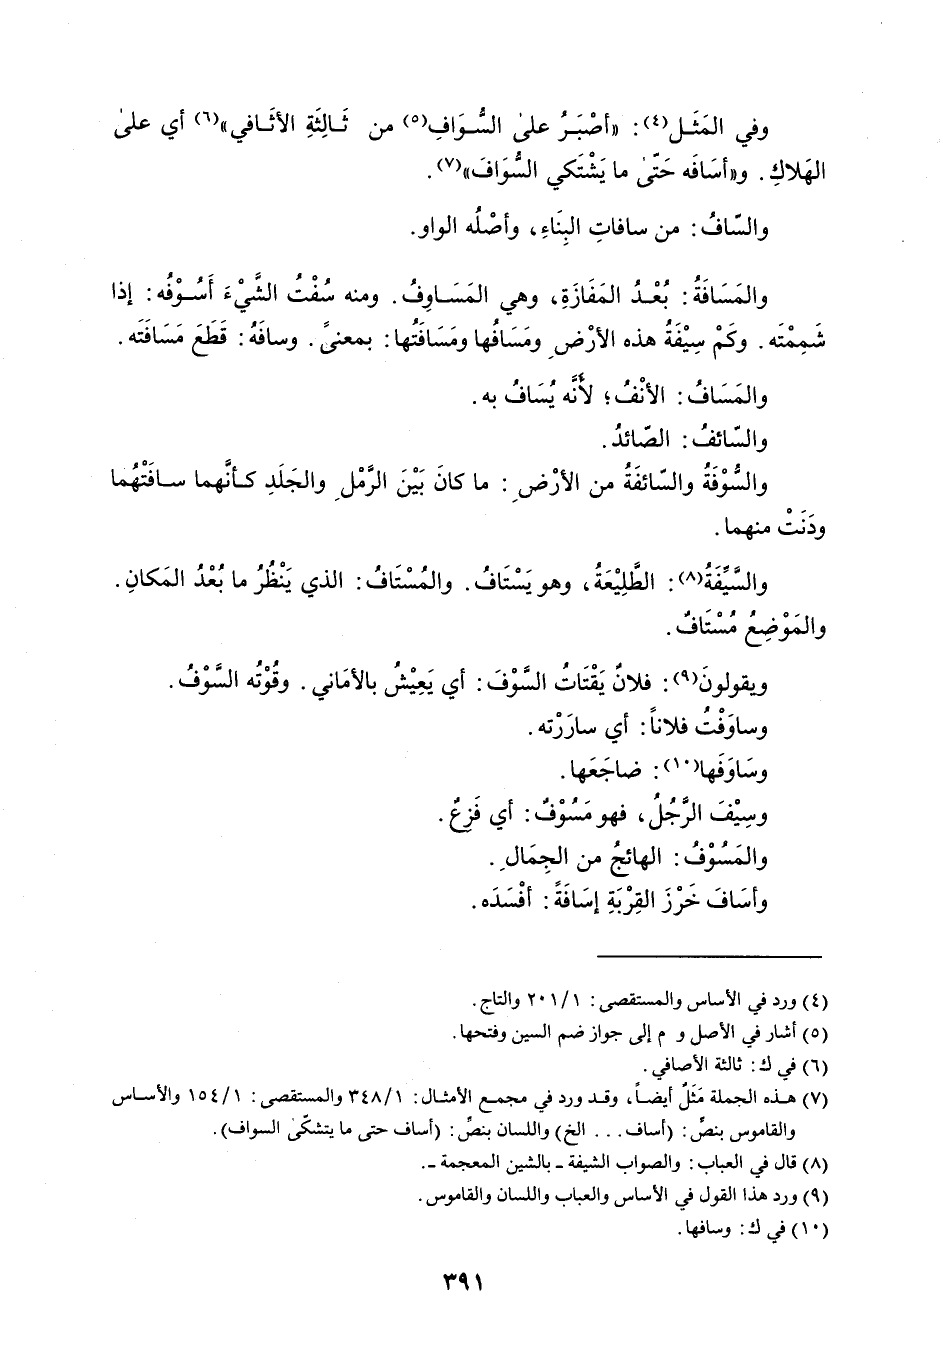 وفي المَثَـل(٤): «أصْبَـرُ علىٰ السُّـوَافِ(٥) من ثَـالِثَةِ الأثَـافي»(٦) أي علىٰ
الهَلاكِ. و«أسَافَه حَتّىٰ ما يَشْتَكي السُّوَافَ»(٧).
والسّافُ: من سافاتِ البِنَاءِ، وأصْلُه الواو.
والمَسَافَةُ: بُعْـدُ المَفَازَةِ، وهي المَسَـاوِفُ. ومنه سُفْتُ الشَّيْءَ أَسُـوْفُه: إذا
شَمِمْتَه. وكَمْ سِيْفَةُ هذه الأرْضِ ومَسَافُها ومَسَافَتُها: بمعنىً. وسافَهُ: قَطَعَ مَسَافَتَه.
والمَسَافُ: الأنْفُ؛ لأنَّه يُسَافُ به.
والسّائفُ: الصّائدُ.
والسُّوْفَةُ والسّائفَةُ من الأرْضِ: ما كانَ بَيْنَ الرَّمْلِ والجَلَدِ كـأنَّهما سـافَتْهُما
ودَنَتْ منهما.
والسَّيِّفَةُ(٨): الطَّلِيْعَةُ، وهو يَسْتَافُ. والمُسْتَافُ: الذي يَنْظُرُ ما بُعْدُ المَكانِ.
والمَوْضِعُ مُسْتَافٌ.
ويقولونَ(٩): فلانٌ يَقْتَاتُ السَّوْفَ: أي يَعِيْشُ بالأمَاني. وقُوْتُه السَّوْفُ.
وساوَفْتُ فلاناً: أي سارَرْته.
وسَاوَفَها(١٠): ضاجَعَها.
وسِيْفَ الرَّجُلُ، فهو مَسُوْفٌ: أي فَزِعٌ.
والمَسُوْفُ: الهائجُ من الجِمَالِ.
وأسَافَ خَرْزَ القِرْبَةِ إسَافَةً: أفْسَدَه.
(٤) ورد في الأساس والمستقصى: ٢٠١/١ والتاج.
(٥) أشار في الأصل و م إلى جواز ضم السين وفتحها.
(٦) في ك: ثالثة الأصافي.
(٧) هـذه الجملة مَثَلٌ أيضـاً، وقـد ورد في مجمـع الأمثـال: ٣٤٨/١ والمستقصى: ١٥٤/١ والأسـاس
والقاموس بنصِّ: (أساف... الخ) واللسان بنصِّ: (أساف حتى ما يتشكّىٰ السواف).
(٨) قال في العباب: والصواب الشيفة ـ بالشين المعجمة ـ.
(٩) ورد هذا القول في الأساس والعباب واللسان والقاموس.
(١٠) في ك: وسافها.
٣٩١